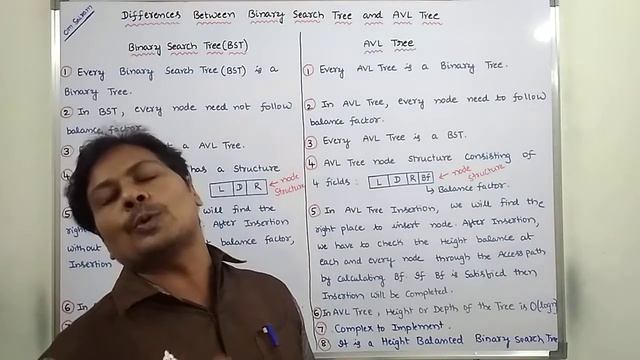 Om Sairam
Differences Between Binary Search Tree and AVL Tree
Binary Search Tree (BST)
① Every Binary Search Tree (BST) is a
Binary Tree.
② In BST, every node need not follow
balance factor.
③ a AVL Tree.
④ has a structure
L D R ← node
structure
⑤ will find the
right After Insertion
without balance factor,
Insertion
⑥ In
AVL Tree
① Every AVL Tree is a Binary Tree.
② In AVL Tree, every node need to follow
balance factor.
③ Every AVL Tree is a BST.
④ AVL Tree node structure consisting of
4 fields: L D R Bf ← node
structure
↳ Balance factor.
⑤ In AVL Tree Insertion, we will find the
right place to insert node. After Insertion,
we have to check the Height balance at
each and every node through the Access path
by calculating Bf. If Bf is Satisfied then
Insertion will be Completed.
⑥ In AVL Tree, Height or Depth of the Tree is O(logn)
⑦ Complex to Implement.
⑧ It is a Height Balanced Binary Search Tree